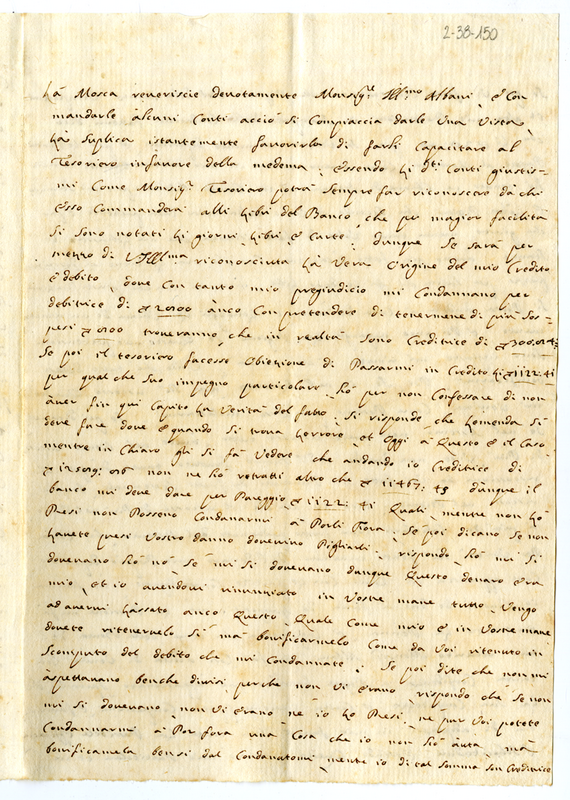 2-38-150
La Mosca reveriscie devotamente Monsig.re Ill.mo Albani, e Con
mandarle alcuni Conti acciò si Compiaccia darle una Vista,
La suplica istantemente favorirla di farli Capacitare al
Tesoriero in favore della medema, essendo li d.ti Conti giustis-
mi Come Monsig.re Tesoriero potrà sempre far riconoscere da chi
esso Commanderà alli Libri del Banco, che per magior facilità
si sono notati li giorni, Libri, e Carte, dunque se sarà per
mezzo di riconosciuta La Vera Origine del mio Credito
e debito, dove Con tanto mio pregiudicio mi Condannano per
debitrice di 2000 anco Con pretendere di tenermene di più sos-
pesi troveranno, che in realtà sono Creditrice di
se poi il tesoriero facesse Obiezione di Passarmi in Credito li 1122:41
per qualche suo impegno particolare, ò per non Confessare di non
aver fin qui Capito La Verità del fatto, si risponde, che L'emenda si
deve fare dove e quando si trova L'errore, et Oggi à Questo è il Caso
mentre in Chiaro gli si fà Vedere, che andando io Creditrice di
non ne hò retratti altro che 11467: 45 dunque il
banco mi deve dare per Pareggio 1122: 41 Quali mentre non hò
Presi non Posseno Condanarmi à Porli fora, se poi dicano se non
havete presi Vostro danno dovevivo Pigliarli, rispondo, ò mi si
dovevano ò nò, se mi si dovevano dunque Questo denaro era
mio, et io avendovi rinunziato in Vostre mane tutto, Vengo
ad avervi Lassato anco Questo, Quale Come mio e in Vostre mane
dovete ritenervelo sì mà bonificarmelo Come da Voi ritenuto in
Scomputo del debito che mi Condannate, se poi dite, che non mi
aspettavano benche divisi perche non vi erano, rispondo che se non
mi si dovevano, non vi erano, ne io ho Presi, ne pur Voi potete
Condannarmi à Por fora una Cosa che io non hò auta, mà
bonificamela bensi dal Condanatomi, mente io di tal somma son Creditrice